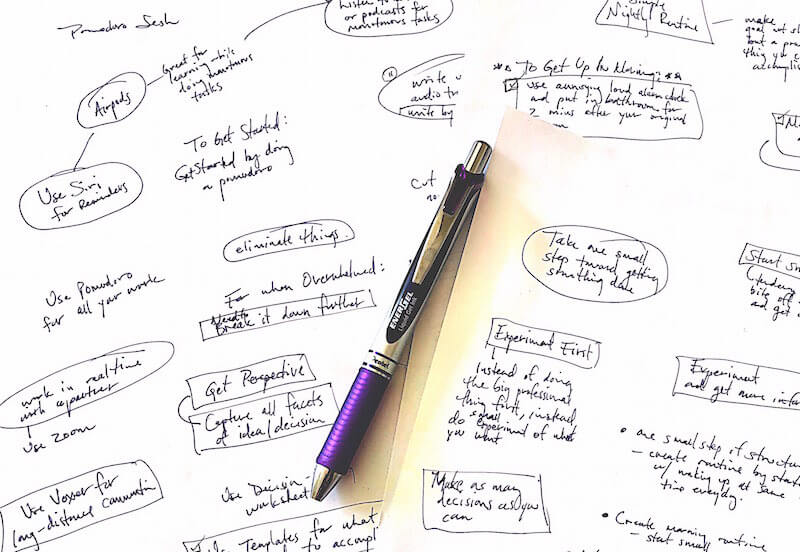 Pomodoro Sesh
Great for
learning while
doing monotonous
tasks
Airpods
Use Siri
for Reminders
or podcasts for
monotonous tasks
To Get Started:
Get Started by doing
a pomodoro
write
audio
write by
Simple
Nightly Routine
make
but a
thing
accomplis
To Get Up In Morning:
use annoying loud alarm clock
and put in bathroom for
2 mins after your original
cut
no
eliminate things.
Use Pomodoro
for all your work
For when Overwhelmed:
Break it down further
Take one small
step toward getting
something done
Start sm
bite off
and get
ENERGEL
Liquid Gel Ink
Pentel
work in real-time
with a partner
use zoom
Get Perspective
- Capture all facets
of idea/decision
Experiment First
Instead of doing
the big professional
thing first, instead
do small experiment of what
you want
Experiment
and get more
Use Voxer for
long-distance
Use Decision
worksheet
Use Templates for what
to accompl
Make as many
decisions as you
can
• one small step if structure
- create routine by start
w/ waking up at same
time everyday.
• Create morning routine
- start small